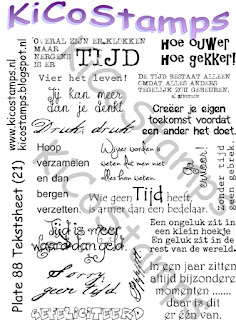 KiCoStamps
www.kicostamps.nl
kicostamps.blogspot.nl
Plate 88 Tekstsheet (21)
OVERAL ZIJN ER KLOKKEN
MAAR
NERGENS
IS ER
TIJD
Hoe ouwer
hoe gekker!
Vier het leven!
DE TIJD BESTAAT ALLEEN
OMDAT ALLES ANDERS
TEGELIJK ZOU GEBEUREN.
Jij kan meer
dan je denkt
Creëer je eigen
toekomst voordat
een ander het doet.
Druk, druk
Hoop
verzamelen
en dan
bergen
verzetten.
Wijzer worden is
weten dat men niet
alles kan weten.
Ga
groeien!
zonder gebrek.
Wie geen Tijd heeft,
is armer dan een bedelaar.
Tijd is meer
waard dan geld.
Een ongeluk zit in
een klein hoekje
En geluk zit in de
rest van de wereld.
Sorry,
geen tijd
In een jaar zitten
altijd bijzondere
momenten ........
daar is dit
er één van.
GEFELICITEERD
KiCoStamps